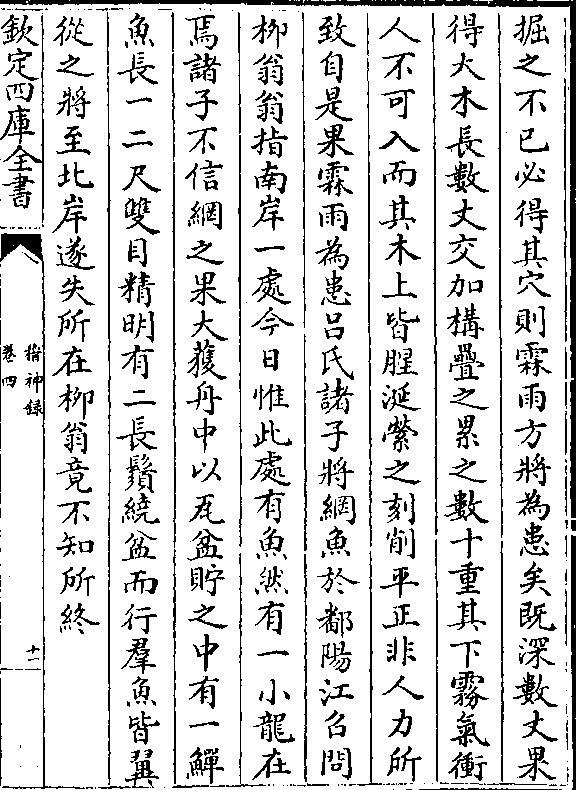 掘之不已必得其穴則霖雨方將為患矣既深數丈果
得大木長數丈交加構疊之累之數十重其下霧氣衝
人不可入而其木上皆腥涎縈之刻削平正非人力所
致自是果霖雨為患吕氏諸子將網魚於鄱陽江召問
柳翁翁指南岸一處今日惟此處有魚然有一小龍在
焉諸子不信網之果大獲舟中以瓦盆貯之中有一鱓
魚長一二尺雙目精明有二長鬚繞盆而行羣魚皆翼
從之將至北岸遂失所在柳翁竟不知所終
欽定四庫全書
稽神録
卷四
十一